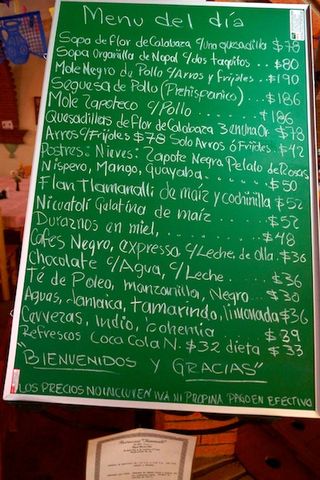 Menu del día
Sopa de flor de Calabaza c/una quesadilla $78
Sopa Orgánilla de Nopal c/dos taquitos.. $80
Mole Negro de Pollo c/Arros y Frijoles. $190
Seguesa de Pollo (Prehispanico)... $186
Mole Zapoteco c/Pollo........ $186
Quesadillas de flor de Calabaza 3 en una Or $78
Arros c/Frijoles $78 Solo Arros ó Frijoles. $42
Postres: Nieves: Zapote Negra Petalo de Rosas
Nispero, Mango, guayaba...... $50
Flan Tlamanalli de maiz y cochinilla $52
Nicuatoli Gelatina de maiz..... $52
Duraznos en miel,......... $48
Cafes Negro, expresso, c/Leche, de olla. $36
Chocolate c/Agua, c/Leche.... $36
Té de Poleo, manzanilla, Negro... $30
Aguas, Jamaica, tamarindo, limonada $36
Cervezas, indio, bohemia $39
Refrescos Coca Cola N. $32 dieta $33
"BIENVENIDOS Y GRACIAS"
LOS PRECIOS NO INCLUYEN IVA NI PROPINA PAGO EN EFECTIVO